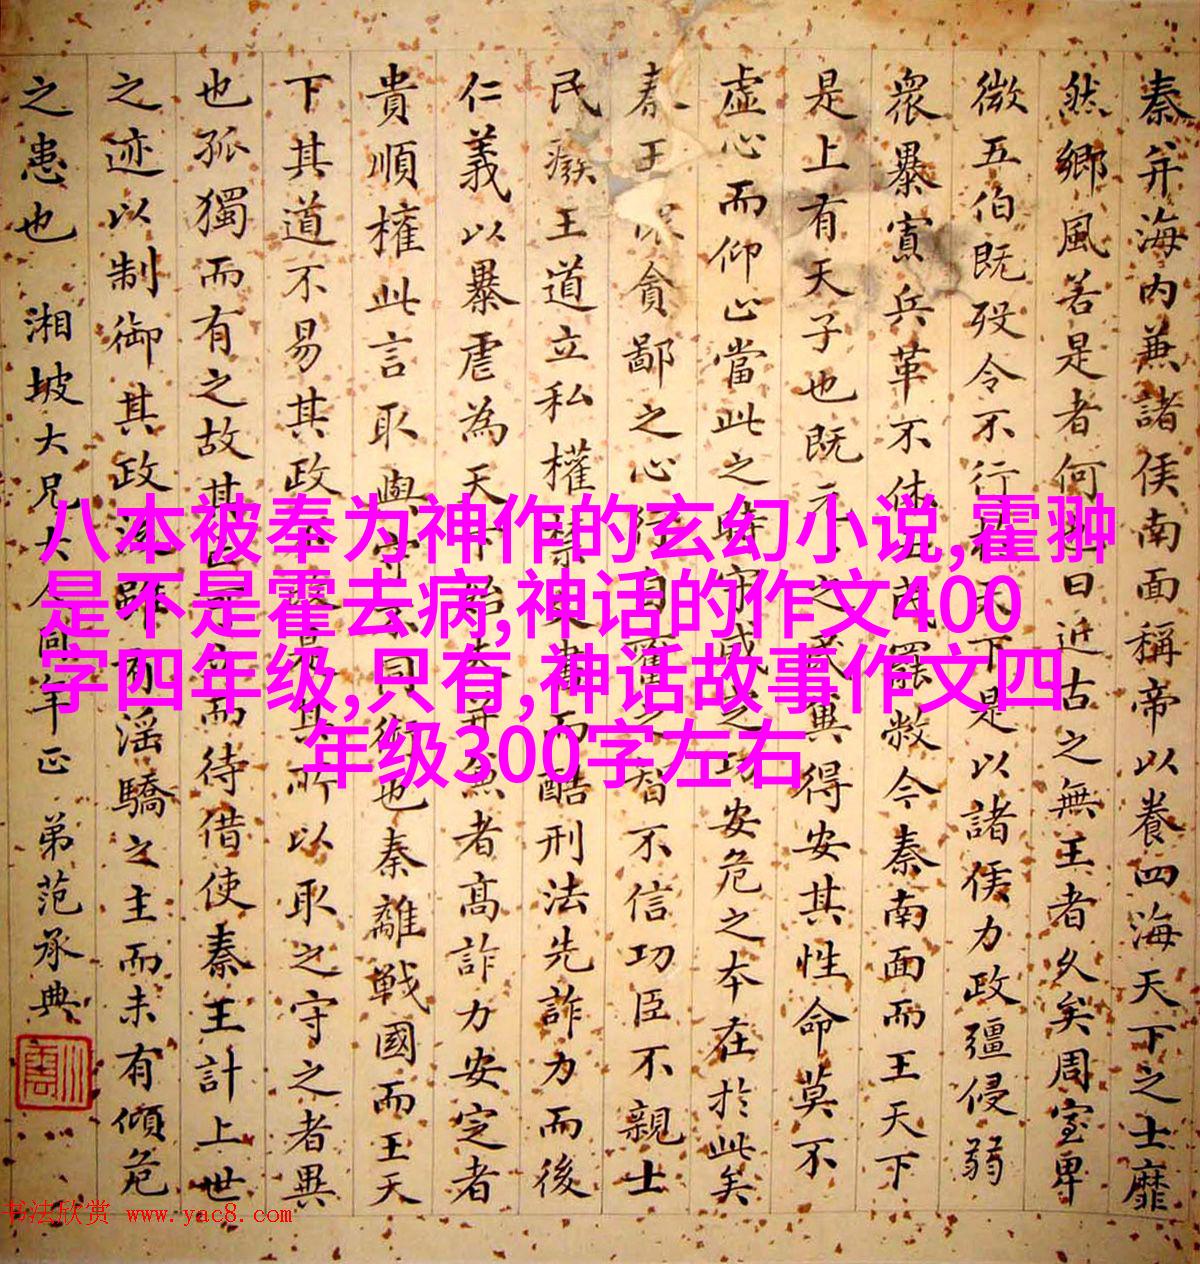 秦并海内兼諸侯南面稱帝以養四海天下之士靡
然鄉風若是者何也曰近古之無王者久矣周室卑
微五伯既歿令不行於天下是以諸侯力政彊侵弱
衆暴寡兵革不休士民罷敝今秦南面而王天下
是上有天子也既元元之民冀得安其性命莫不
虛心而仰止當此之時守威之功安危之本在於此矣
秦王懷貪鄙之心行自奮之智不信功臣不親士
民廢王道立私權禁文書而酷刑法先詐力而後
仁義以暴虐為天下始夫并兼者高詐力安定者
貴順權此言取與守不同術也秦離戰國而王天
下其道不易其政不易其所以取之守之者異
也孤獨而有之故其亡可立而待借使秦王計上世
之迹以制御其政後雖有淫驕之主而未有傾危
之患也 湘坡大兄大人同年正 弟范承典
八本被奉为神作的玄幻小说,霍翀
是不是霍去病,神话的作文400
字四年级,只有,神话故事作文四
年级300字左右
书法欣赏 www.yac8.com